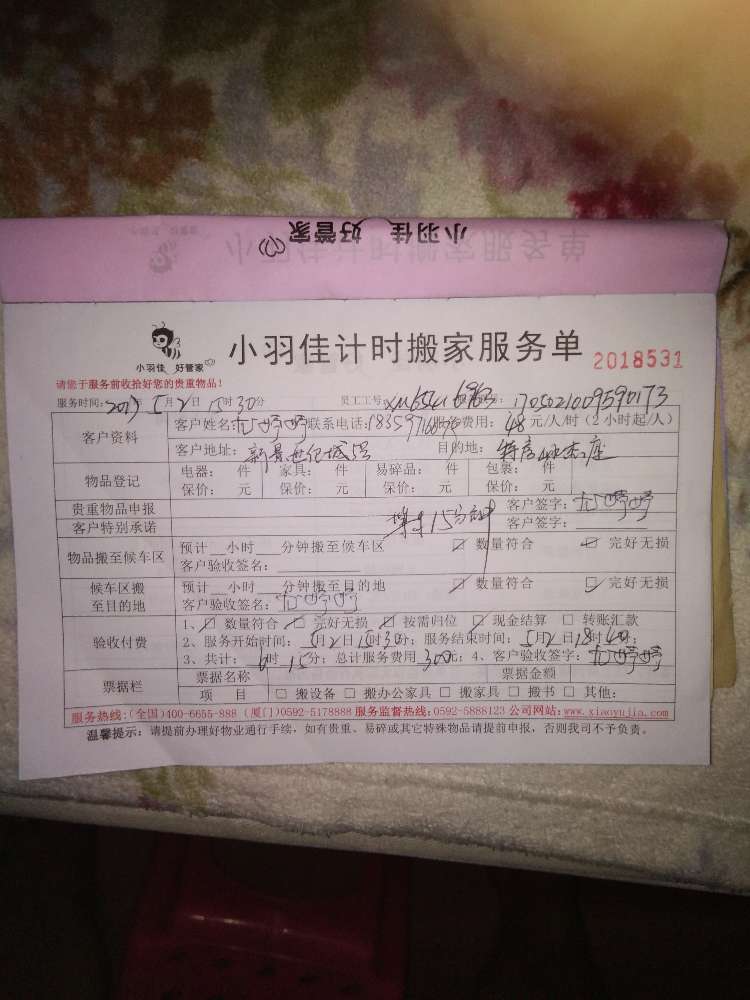 小羽佳 好管家
小羽佳计时搬家服务单
小羽佳 好管家
小羽佳计时搬家服务单
2018531
请您于服务前收拾好您的贵重物品！
服务时间：2017年5月2日15时30分 员工工号：XM6541 6963 1705021009590173
客户资料
客户姓名：尤婷婷 联系电话： 服务费用：48元/人/时（2小时起/人）
客户地址：新景世纪城 目的地：
物品登记
电器： 件 家具： 件 易碎品： 件 包裹： 件
保价： 元 保价： 元 保价： 元 保价： 元
贵重物品申报 客户签字：尤婷婷
客户特别承诺 15分钟 客户签字：
物品搬至候车区
预计__小时___分钟搬至候车区 ☑ 数量符合 ☑ 完好无损
客户验收签名：
候车区搬至目的地
预计__小时___分钟搬至目的地 ☑ 数量符合 ☑ 完好无损
客户验收签名：尤婷婷
验收付费
1、☑ 数量符合 ☑ 完好无损 ☑ 按需归位 ☑ 现金结算 □ 转账汇款
2、服务开始时间：5月2日15时30分；服务结束时间：5月2日18时40分；
3、共计：6时15分；总计服务费用300元；4、客户验收签字：尤婷婷
票据栏
票据名称 票据金额
项 目 □ 搬设备 □ 搬办公家具 □ 搬家具 □ 搬书 □ 其他：
服务热线：(全国)400-6655-888 (厦门)0592-5178888 服务监督热线：0592-5888123 公司网站：www.xiaoyujia.com
温馨提示：请提前办理好物业通行手续，如有贵重、易碎或其它特殊物品请提前申报，否则我司不予负责。